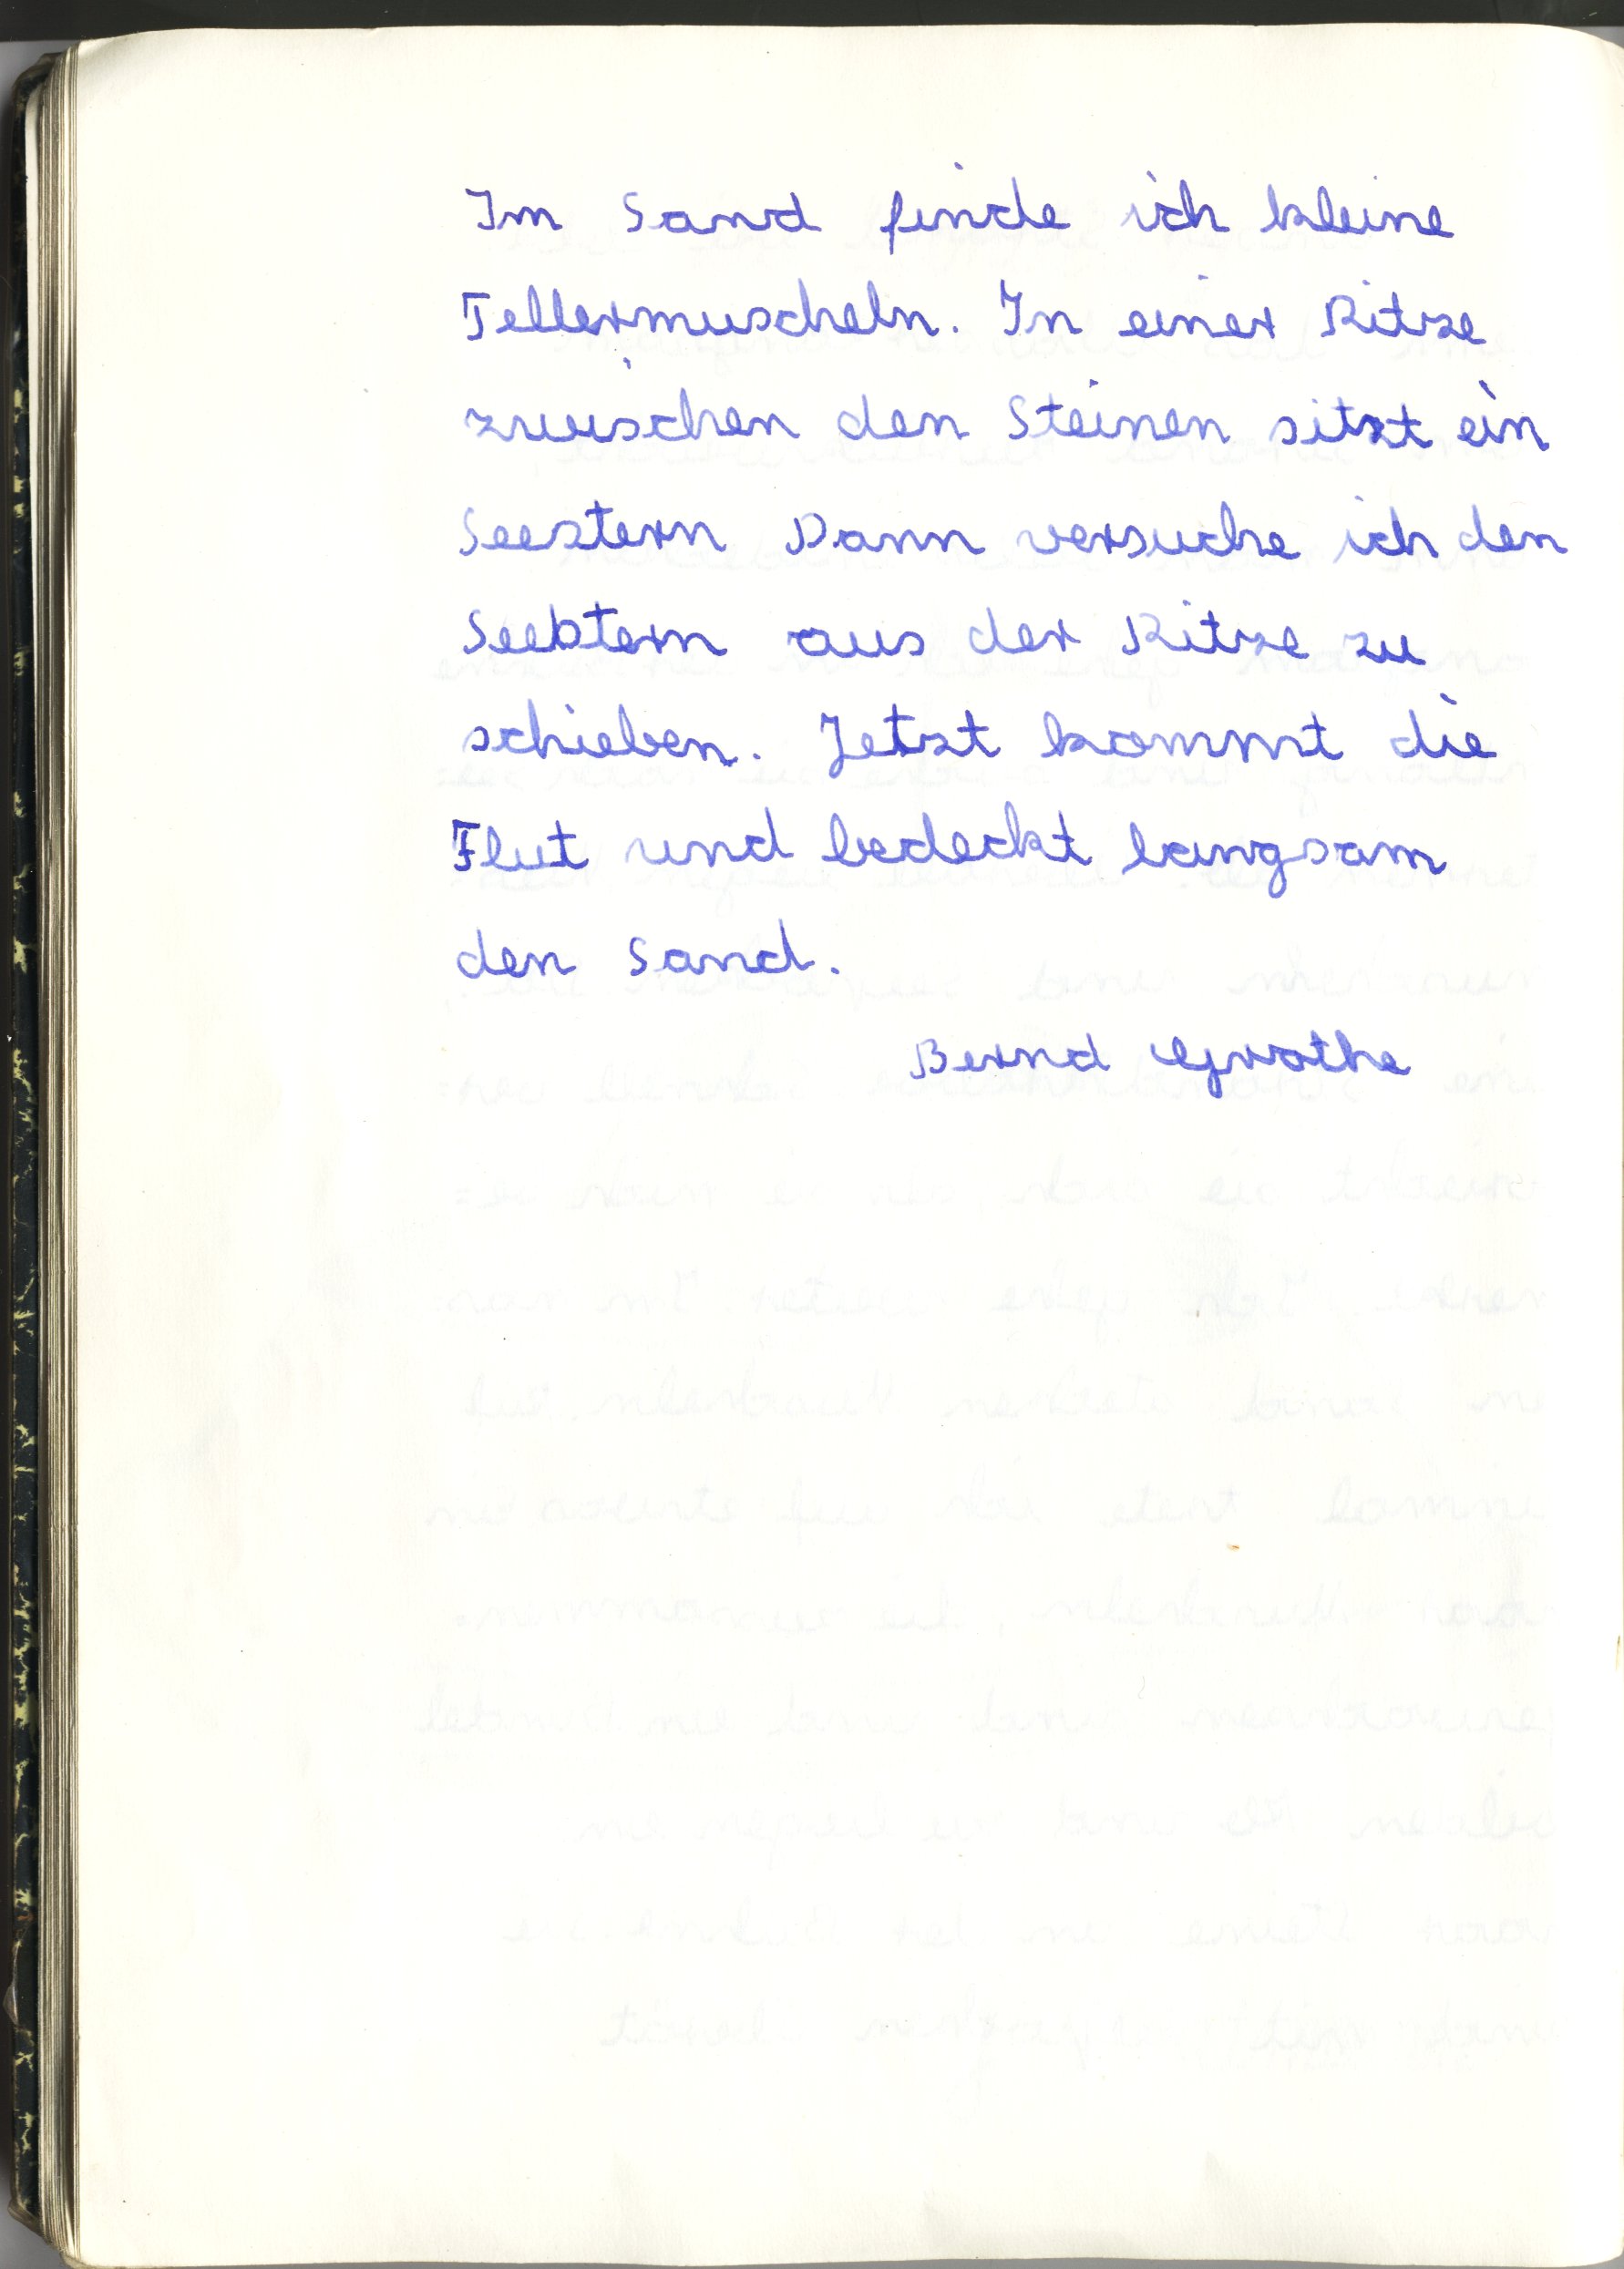 Im Sand finde ich kleine
Tellermuscheln. In einer Ritze
zwischen den Steinen sitzt ein
Seestern Dann versuche ich den
Seestern aus der Ritze zu
schieben. Jetzt kommt die
Flut und bedeckt langsam
den Sand.
Bernd Grothe